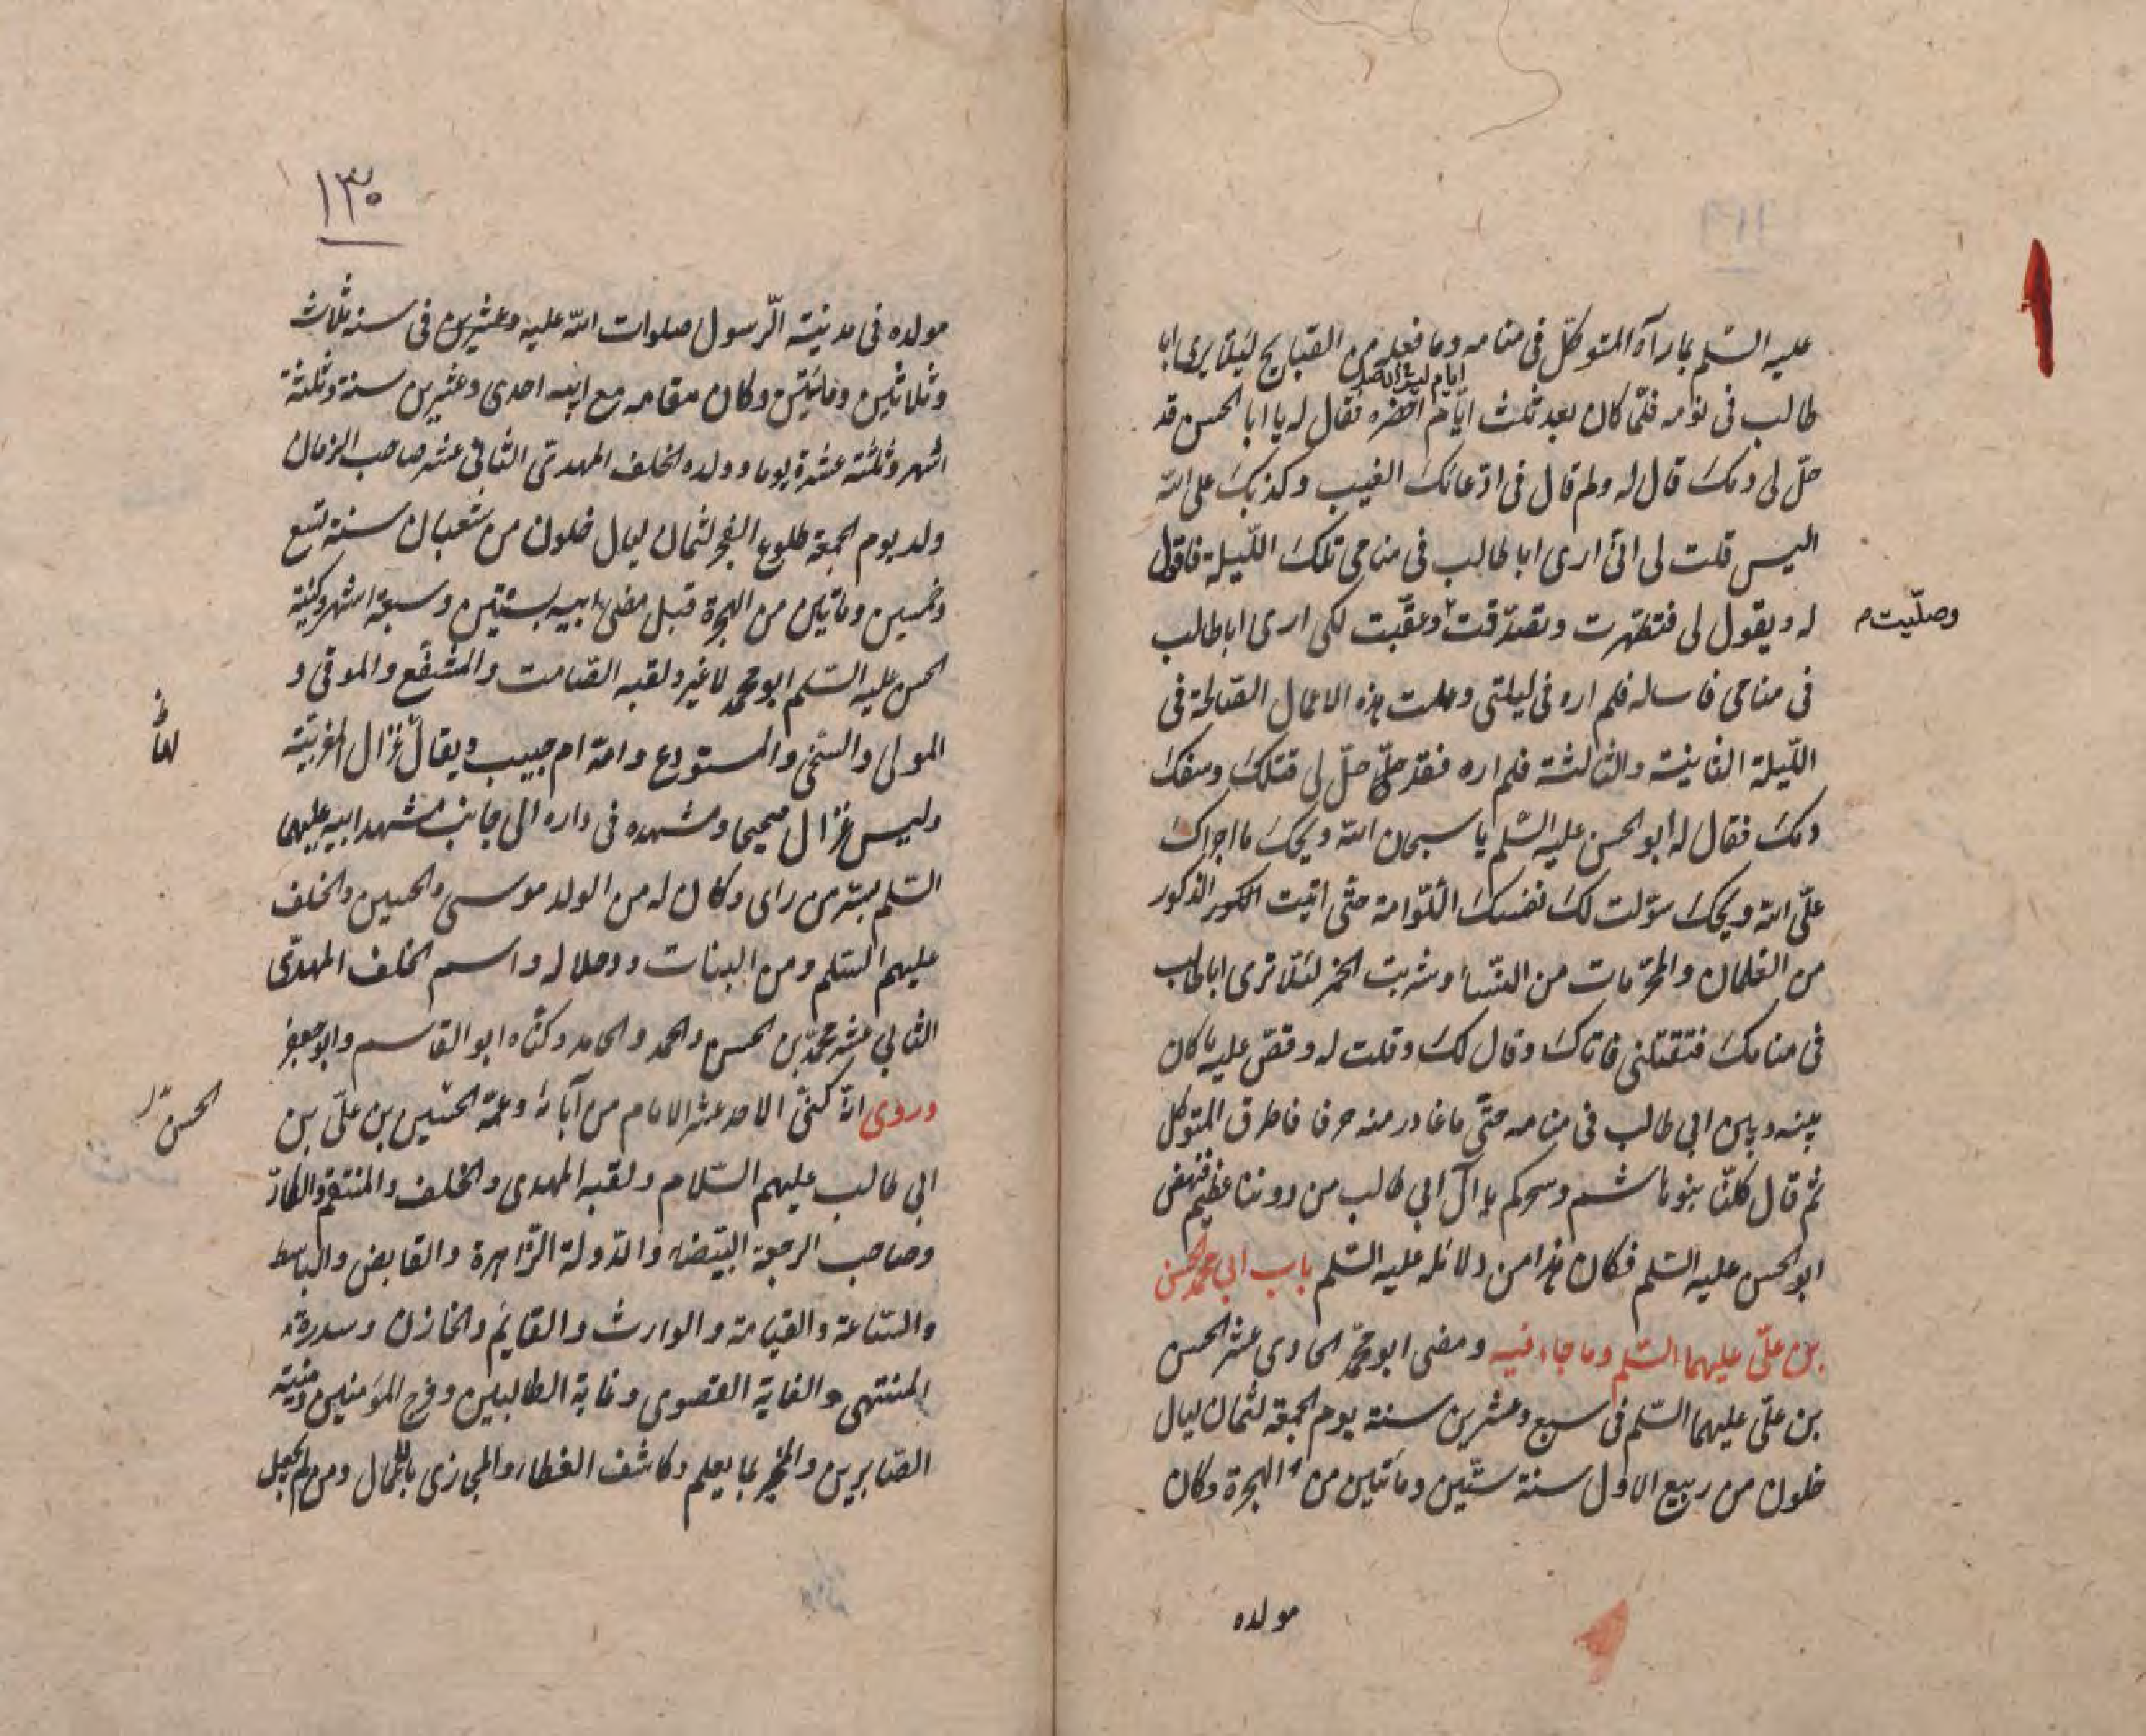 عليه السّلم بما رآه المتوكّل فى منامه وما فعله من القبايح ليلا يرى ابا
ايام ليث الحصر
طالب فى نومه فلمّا كان بعد ثلث ايّام احضره فقال له يا ابا الحسن قد
حلّ لى دمك قال له ولم قال فى ادّعائك الغيب وكذبك على اللّه
اليس قلت لى انّى ارى ابا طالب فى منامى تلك اللّيلة فاقول
له ويقول لى فتطهّرت وتصدّقت وعقّبت لكى ارى ابا طالب
وصلّيت م
فى منامى فاساله فلم اره فى ليلتى وعملت هذه الاعمال الصّالحة فى
اللّيلة الثانية والثالثة فلم اره فقد حلّ حلّ لى قتلك وسفك
دمك فقال له ابو الحسن عليه السّلم يا سبحان اللّه ويحك ما اجراك
علىّ اللّه ويحك سوّلت لك نفسك اللّوامة حتّى اتيت الذكور الذكور
من الغلمان والمحرّمات من النّساء وشربت الخمر لئلّا ترى ابا طالب
فى منامك فتقتلنى فاتاك وقال لك وقلت له وقصّ عليه ما كان
بينه وبين ابى طالب فى منامه حتّى ما غادر منه حرفا فاطرق المتوكل
ثم قال كلّنا بنو هاشم وسحركم يا آل ابى طالب من دوننا عظيم فنهض
ابو الحسن عليه السّلم فكان هذا من دلائله عليه السّلم باب ابى محمد الحسن
بن علىّ عليهما السّلم وما جاء فيه ومضى ابو محمّد الحادى عشر الحسن
بن علىّ عليهما السّلم فى سبع وعشرين سنة يوم الجمعة لثمان ليال
خلون من ربيع الاول سنة ستّين ومأتين من الهجرة وكان
مولده
١٣٠
مولده فى مدينة الرّسول صلوات اللّه عليه وعشرين فى سنة ثلاث
وثلاثين ومائتين وكان مقامه مع ابيه احدى وعشرين سنة وثلثة
اشهر وثلثة عشرة يوما وولده الخلف المهدىّ الثانى عشر صاحب الزمان
ولد يوم الجمعة طلوع الفجر لثمان ليال خلون من شعبان سنة تسع
وخمسين ومأتين من الهجرة قبل مضىّ ابيه بسنتين وسبعة اشهر وكنية
الحسن عليه السّلم ابو محمّد لا غير ولقبه الصّامت والمشفّع والموقى و
المولى والسّخىّ والمستودع وامّه ام حبيب ويقال غزال المغربيّة
وليس غزال صحيحا ومشهده فى داره الى جانب مشهد ابيه عليهما
السّلم بسّر من راى وكان له من الولد موسى والحسين والخلف
عليهم السّلم ومن البنات ودلاله واسم الخلف المهدىّ
الثانى عشر محمّد بن الحسن واحمد والحامد وكنّاه ابو القاسم وابو جعفر
وروى انّه كنىّ الاحد عشر الامام من آبائه وعمّه الحسين بن علىّ بن
الحسن
ابى طالب عليهم السّلام ولقبه المهدى والخلف والمنتقم والكارّ
وصاحب الرجعة البيضاء والدّولة الزّاهرة والقابض والباسط
والسّاعة والقيامة والوارث والقايم والخازن وسدرة
المنتهى والغاية القصوى وغاية الطالبين وفرج المؤمنين ومنية
الصّابرين والمخبر بما يعلم وكاشف الغطاء والمجازى بالاعمال ومن لم يجعل